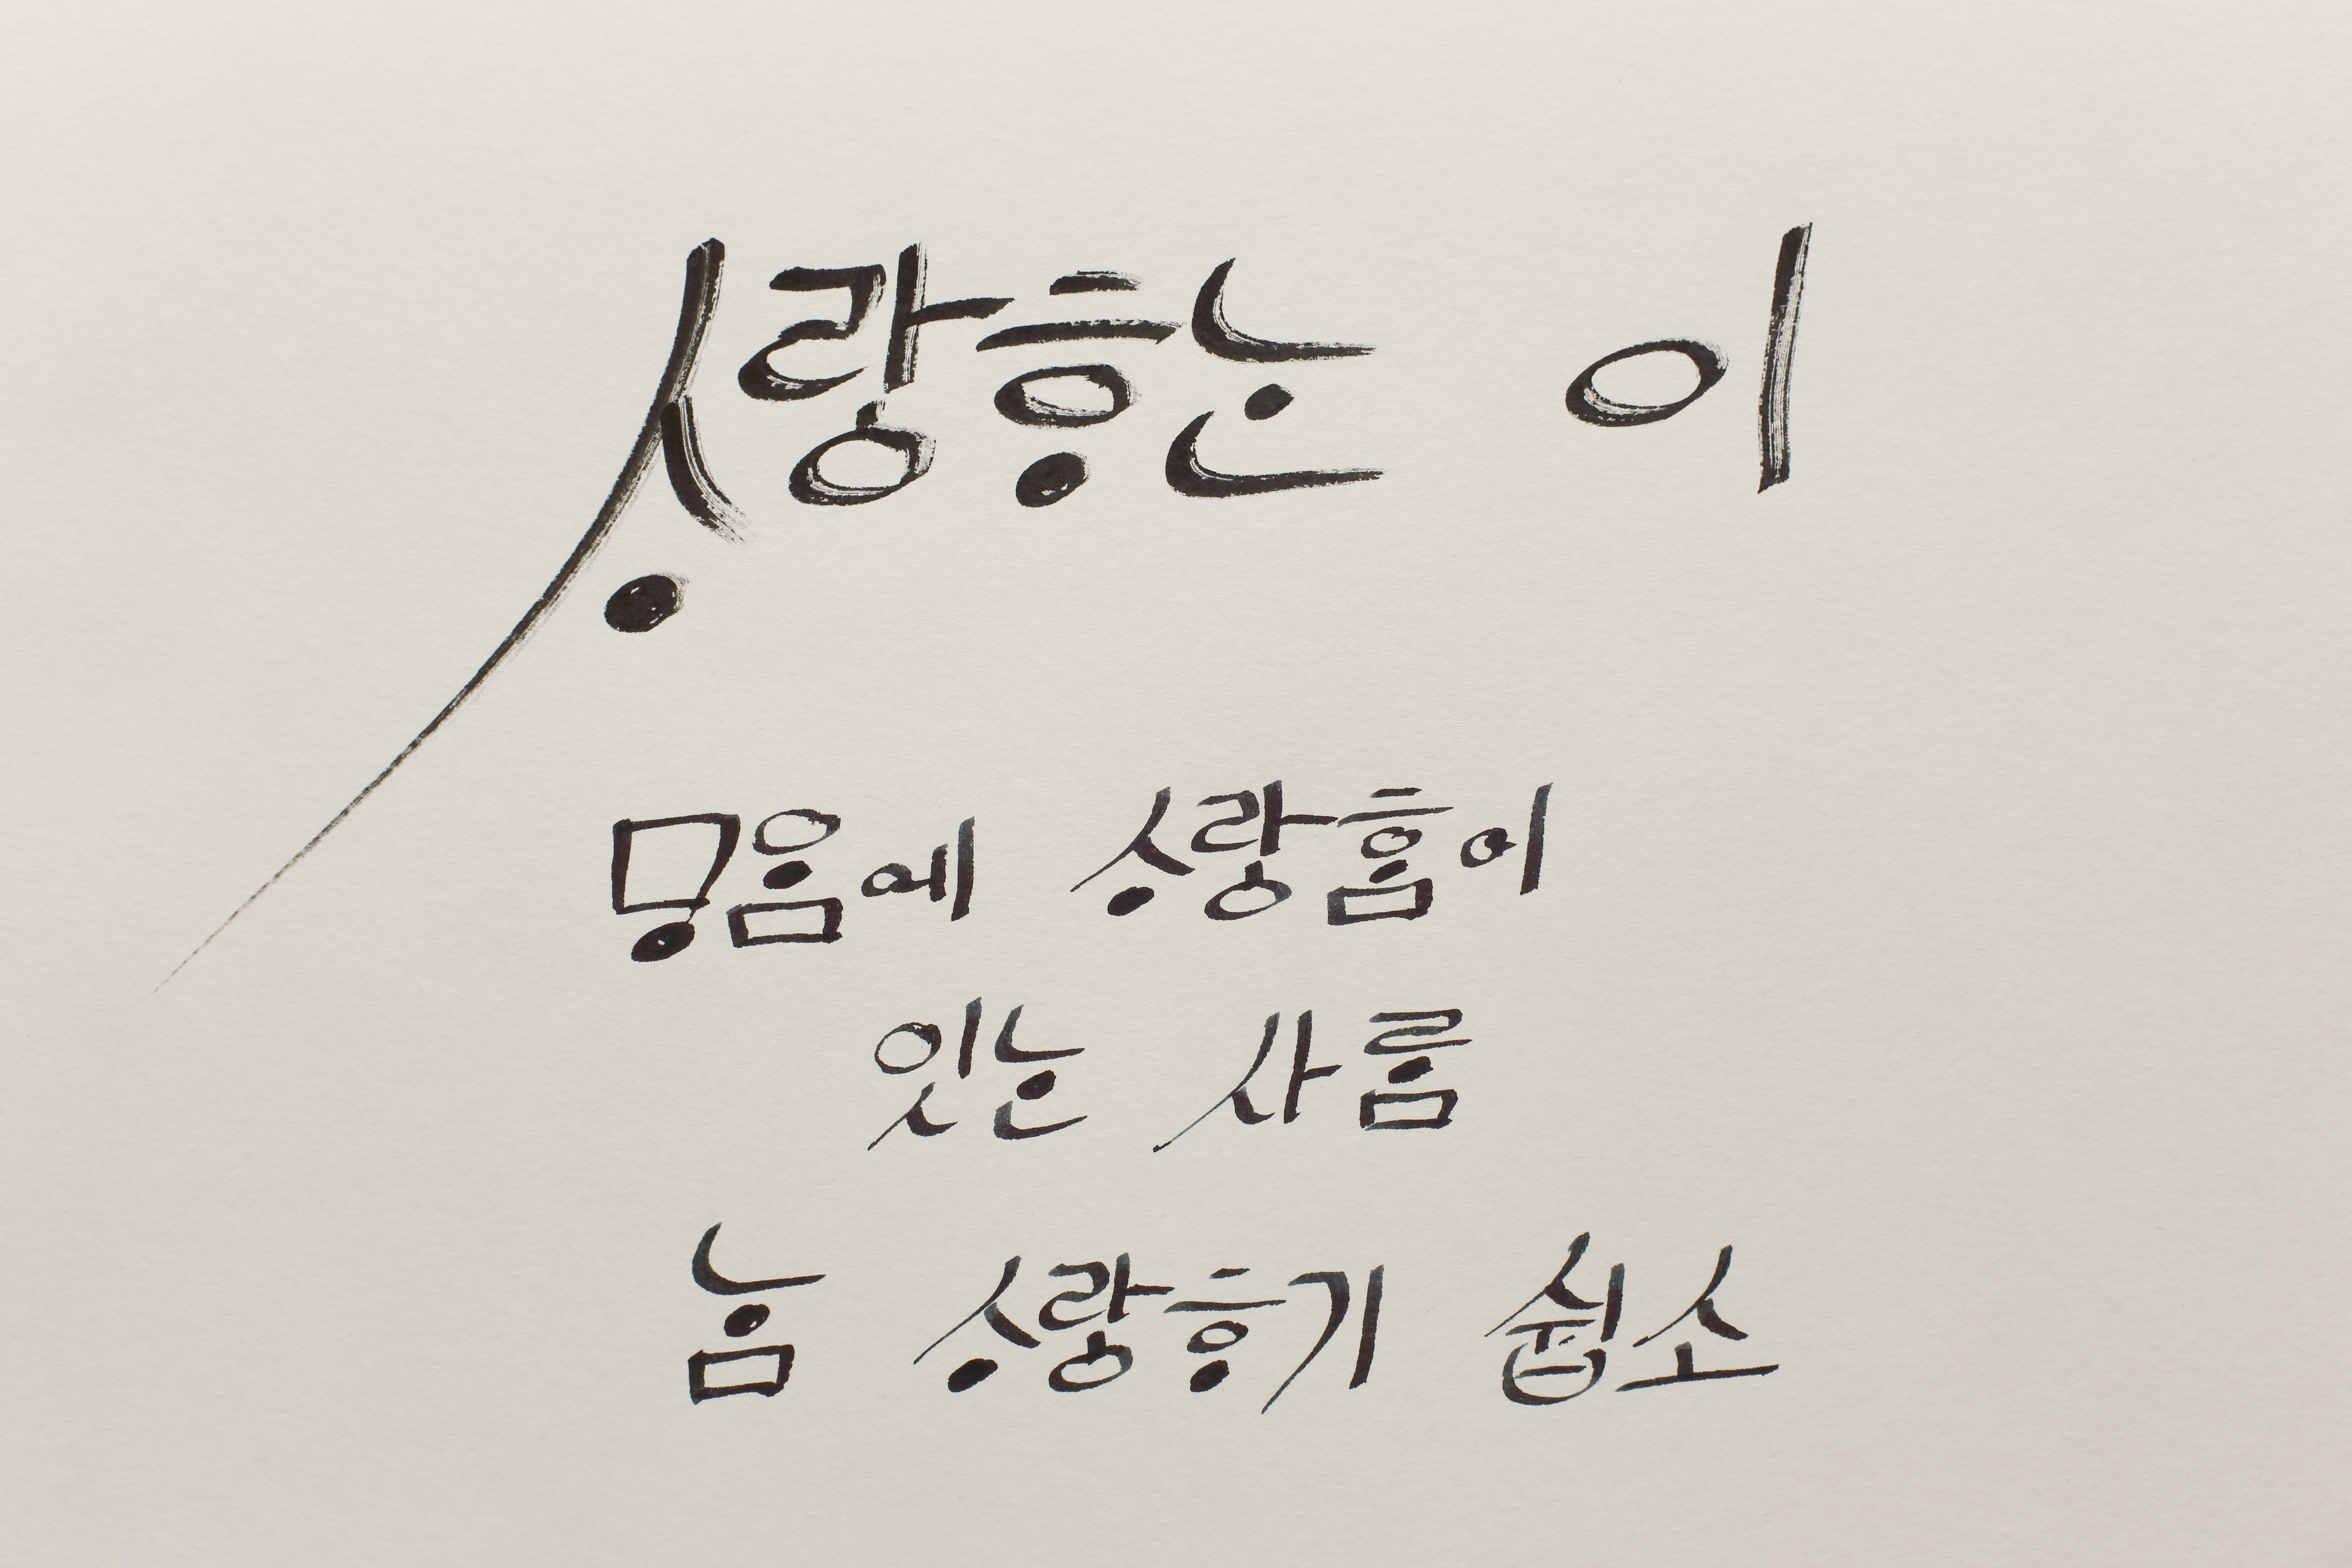 ᄉᆞ랑ᄒᆞᄂᆞᆫ 이
ᄆᆞᄋᆞᆷ에 ᄉᆞ랑ᄒᆞᆷ이
잇ᄂᆞᆫ 사ᄅᆞᆷ
ᄂᆞᆷ ᄉᆞ랑ᄒᆞ기 쉽소